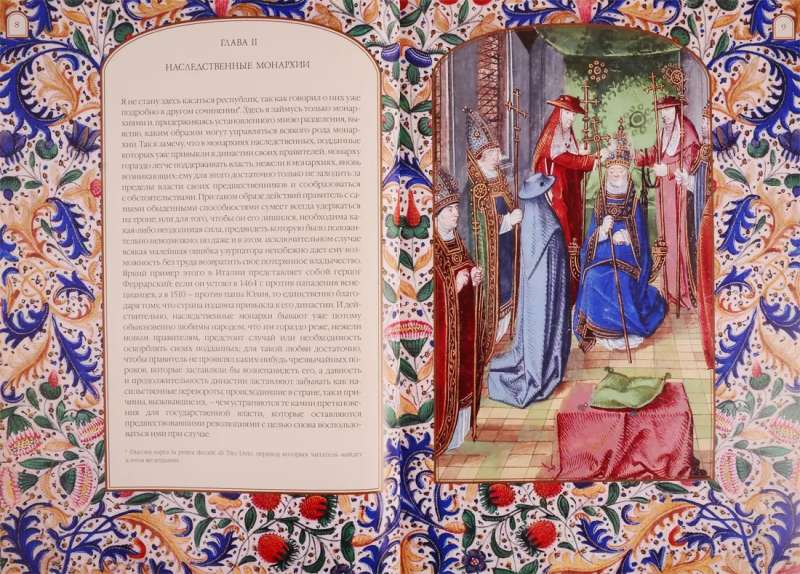 8
9
ГЛАВА II
НАСЛЕДСТВЕННЫЕ МОНАРХИИ
Я не стану здесь касаться республик, так как говорил о них уже
подробно в другом сочинении*. Здесь я займусь только монар-
хиями и, придерживаясь установленного мною разделения, вы-
ясню, каким образом могут управляться всякого рода монар-
хии. Так я замечу, что в монархиях наследственных, подданные
которых уже привыкли к династии своих правителей, монарху
гораздо легче поддерживать власть, нежели в монархиях, вновь
возникающих: ему для этого достаточно только не заходить за
пределы власти своих предшественников и сообразоваться
с обстоятельствами. При таком образе действий правитель с са-
мыми обыденными способностями сумеет всегда удержаться
на троне; или для того, чтобы он его лишился, необходима ка-
кая-либо неодолимая сила, предвидеть которую было положи-
тельно невозможно; но даже и в этом исключительном случае
всякая малейшая ошибка узурпатора неизбежно дает ему воз-
можность без труда возвратить свое потерянное владычество.
Яркий пример этого в Италии представляет собой герцог
Феррарский: если он устоял в 1464 г. против нападения вене-
цианцев, а в 1510 – против папы Юлия, то единственно благо-
даря тому, что страна издавна привыкла к его династии. И дей-
ствительно, наследственные монархи бывают уже потому
обыкновенно любимы народом, что им гораздо реже, нежели
новым правителям, предстоит случай или необходимость
оскорблять своих подданных; для такой любви достаточно,
чтобы правитель не проявлял каких-нибудь чрезвычайных по-
роков, которые заставляли бы возненавидеть его, а давность
и продолжительность династии заставляют забывать как на-
сильственные перевороты, происходившие в стране, так и при-
чины, вызывавшие их, – чем устраняются те камни преткнове-
ния для государственной власти, которые оставляются
предшествовавшими революциями с целью снова воспользо-
ваться ими при случае.
* Discorsi sopra la prima decade di Tito Livio, перевод которых читатель найдет